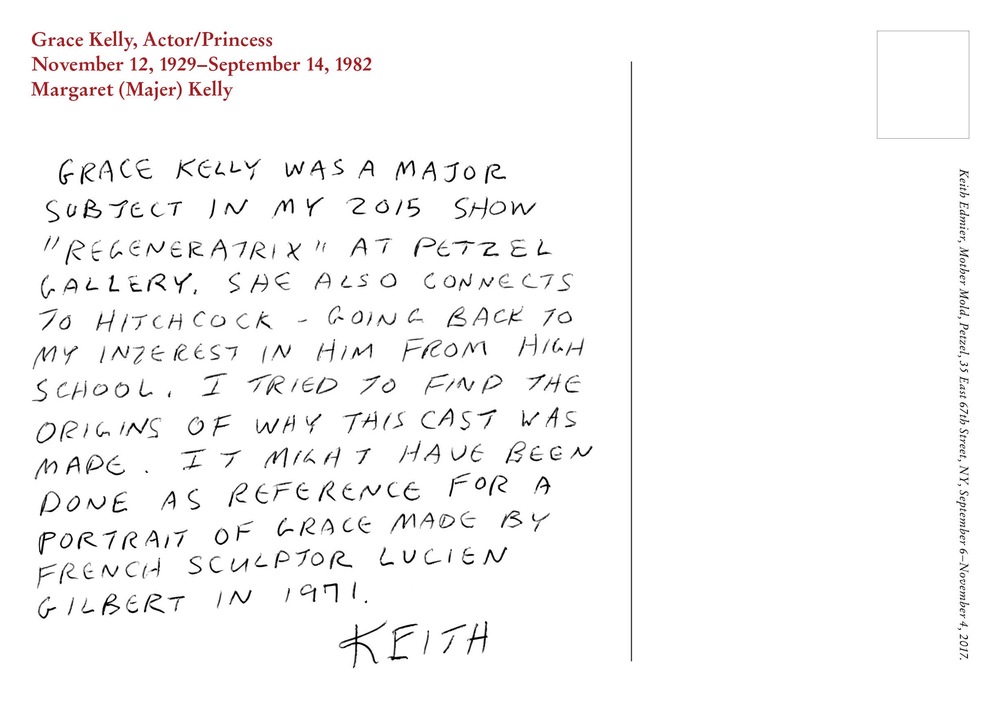 Grace Kelly, Actor/Princess
November 12, 1929–September 14, 1982
Margaret (Majer) Kelly
GRACE KELLY WAS A MAJOR
SUBJECT IN MY 2015 SHOW
"REGENERATRIX" AT PETZEL
GALLERY. SHE ALSO CONNECTS
TO HITCHCOCK - GOING BACK TO
MY INTEREST IN HIM FROM HIGH
SCHOOL. I TRIED TO FIND THE
ORIGINS OF WHY THIS CAST WAS
MADE. IT MIGHT HAVE BEEN
DONE AS REFERENCE FOR A
PORTRAIT OF GRACE MADE BY
FRENCH SCULPTOR LUCIEN
GILBERT IN 1971.
KEITH
Keith Edmier, Mother Mold, Petzel, 35 East 67th Street, NY, September 6–November 4, 2017.